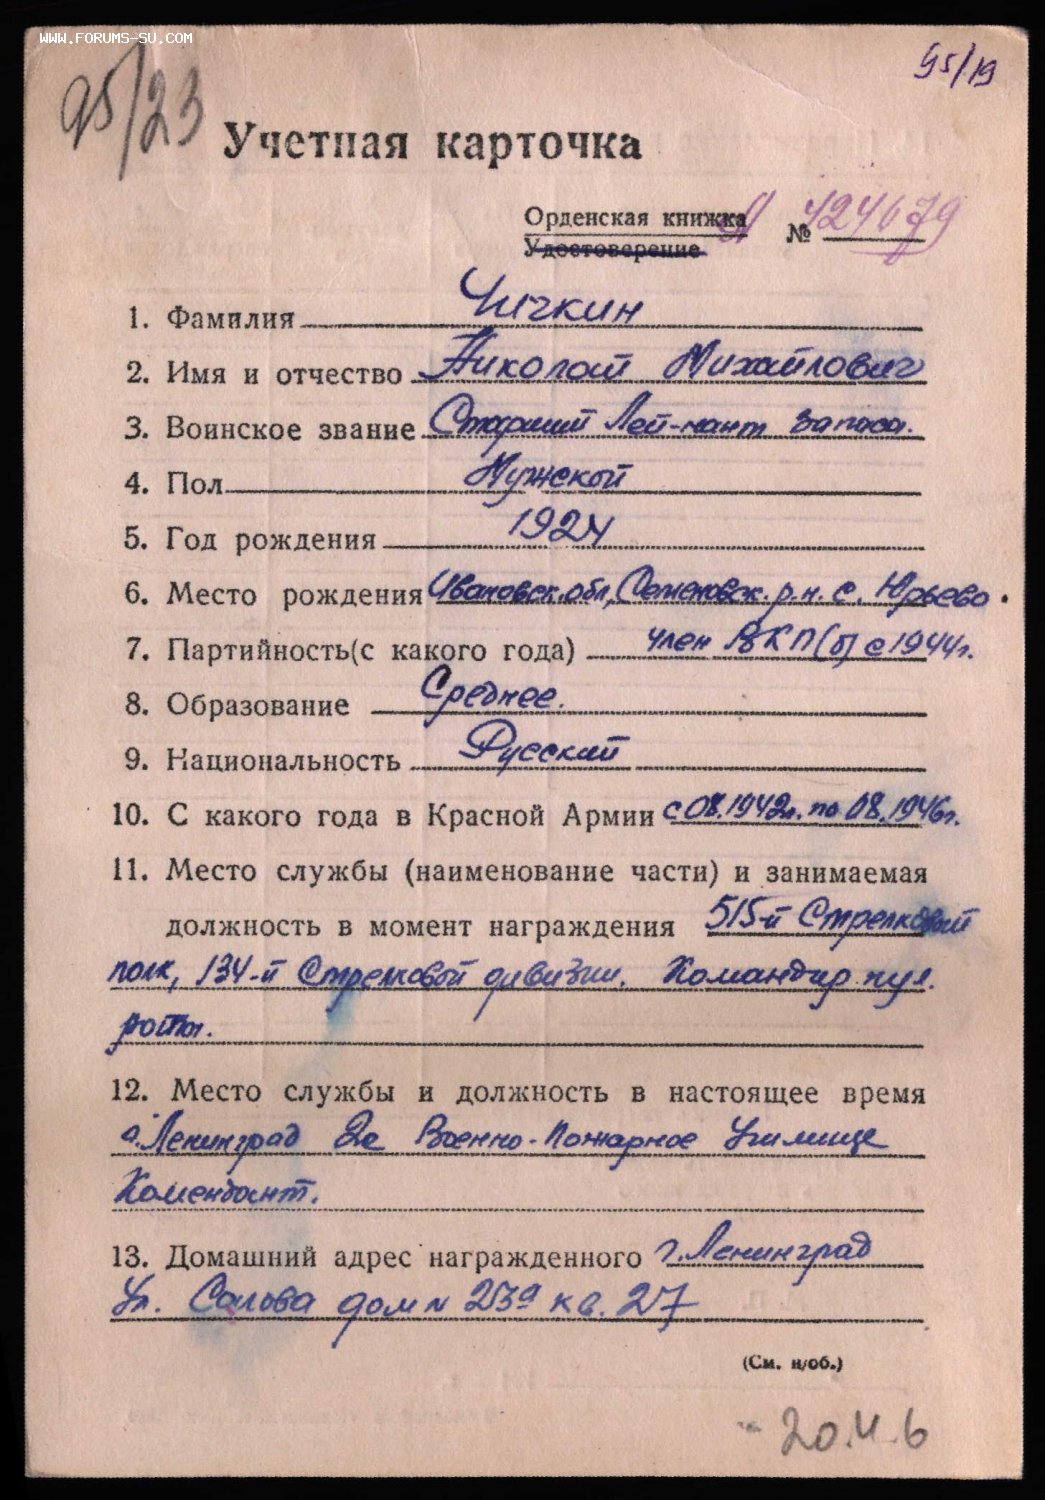 WWW.FORUMS-SU.COM
95/19
95/23
Учетная карточка
Орденская книжка
Удостоверение
№ 424679
1. Фамилия Чичкин
2. Имя и отчество Николай Михайлович
3. Воинское звание Старший Лей-нант запаса.
4. Пол Мужской
5. Год рождения 1924
6. Место рождения Ивановск. обл, Семеновск. р.н. с. Юрьево.
7. Партийность(с какого года) член ВКП(б) с 1944г.
8. Образование Среднее.
9. Национальность Русский
10. С какого года в Красной Армии с 08.1942г. по 08.1946г.
11. Место службы (наименование части) и занимаемая
должность в момент награждения 515-й Стрелковый
полк, 134-й Стрелковой дивизии. Командир пул.
роты.
12. Место службы и должность в настоящее время
г. Ленинград 2е Военно-Пожарное Училище
Комендант.
13. Домашний адрес награжденного г. Ленинград
Ул. дом N кв. 27
(См. н/об.)